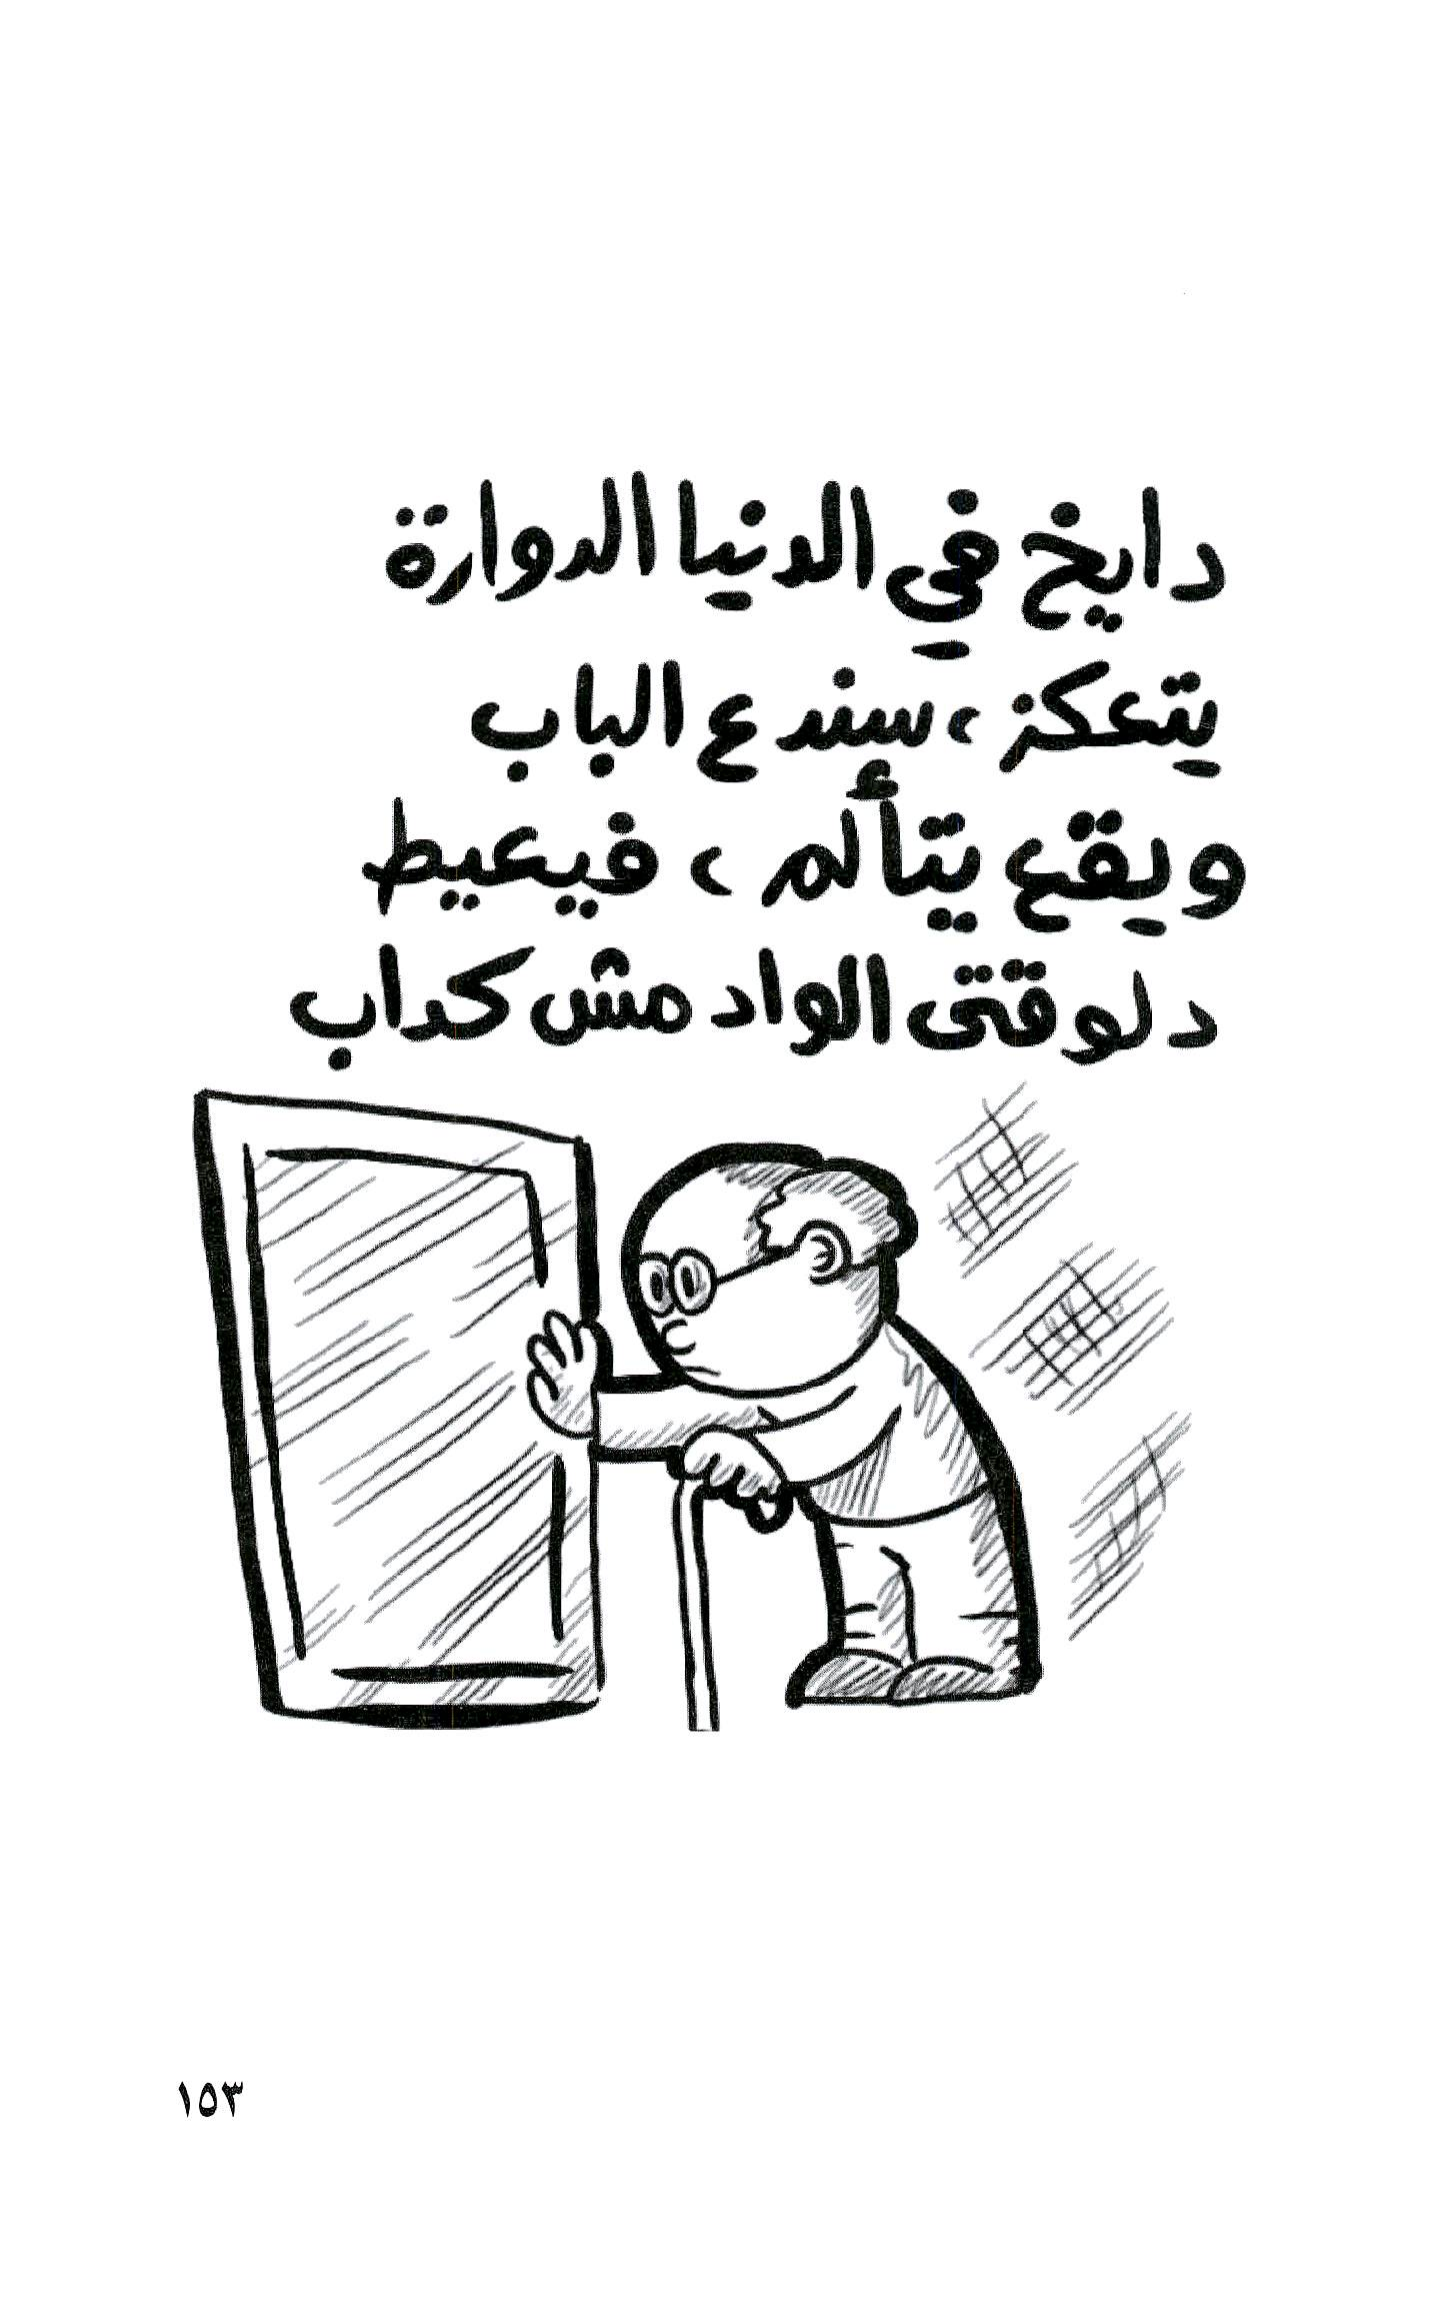 دايخ في الدنيا الدوارة
يتعكز، سند ع الباب
ويقع يتألم، فيعيط
دلوقتى الواد مش كداب
١٥٣